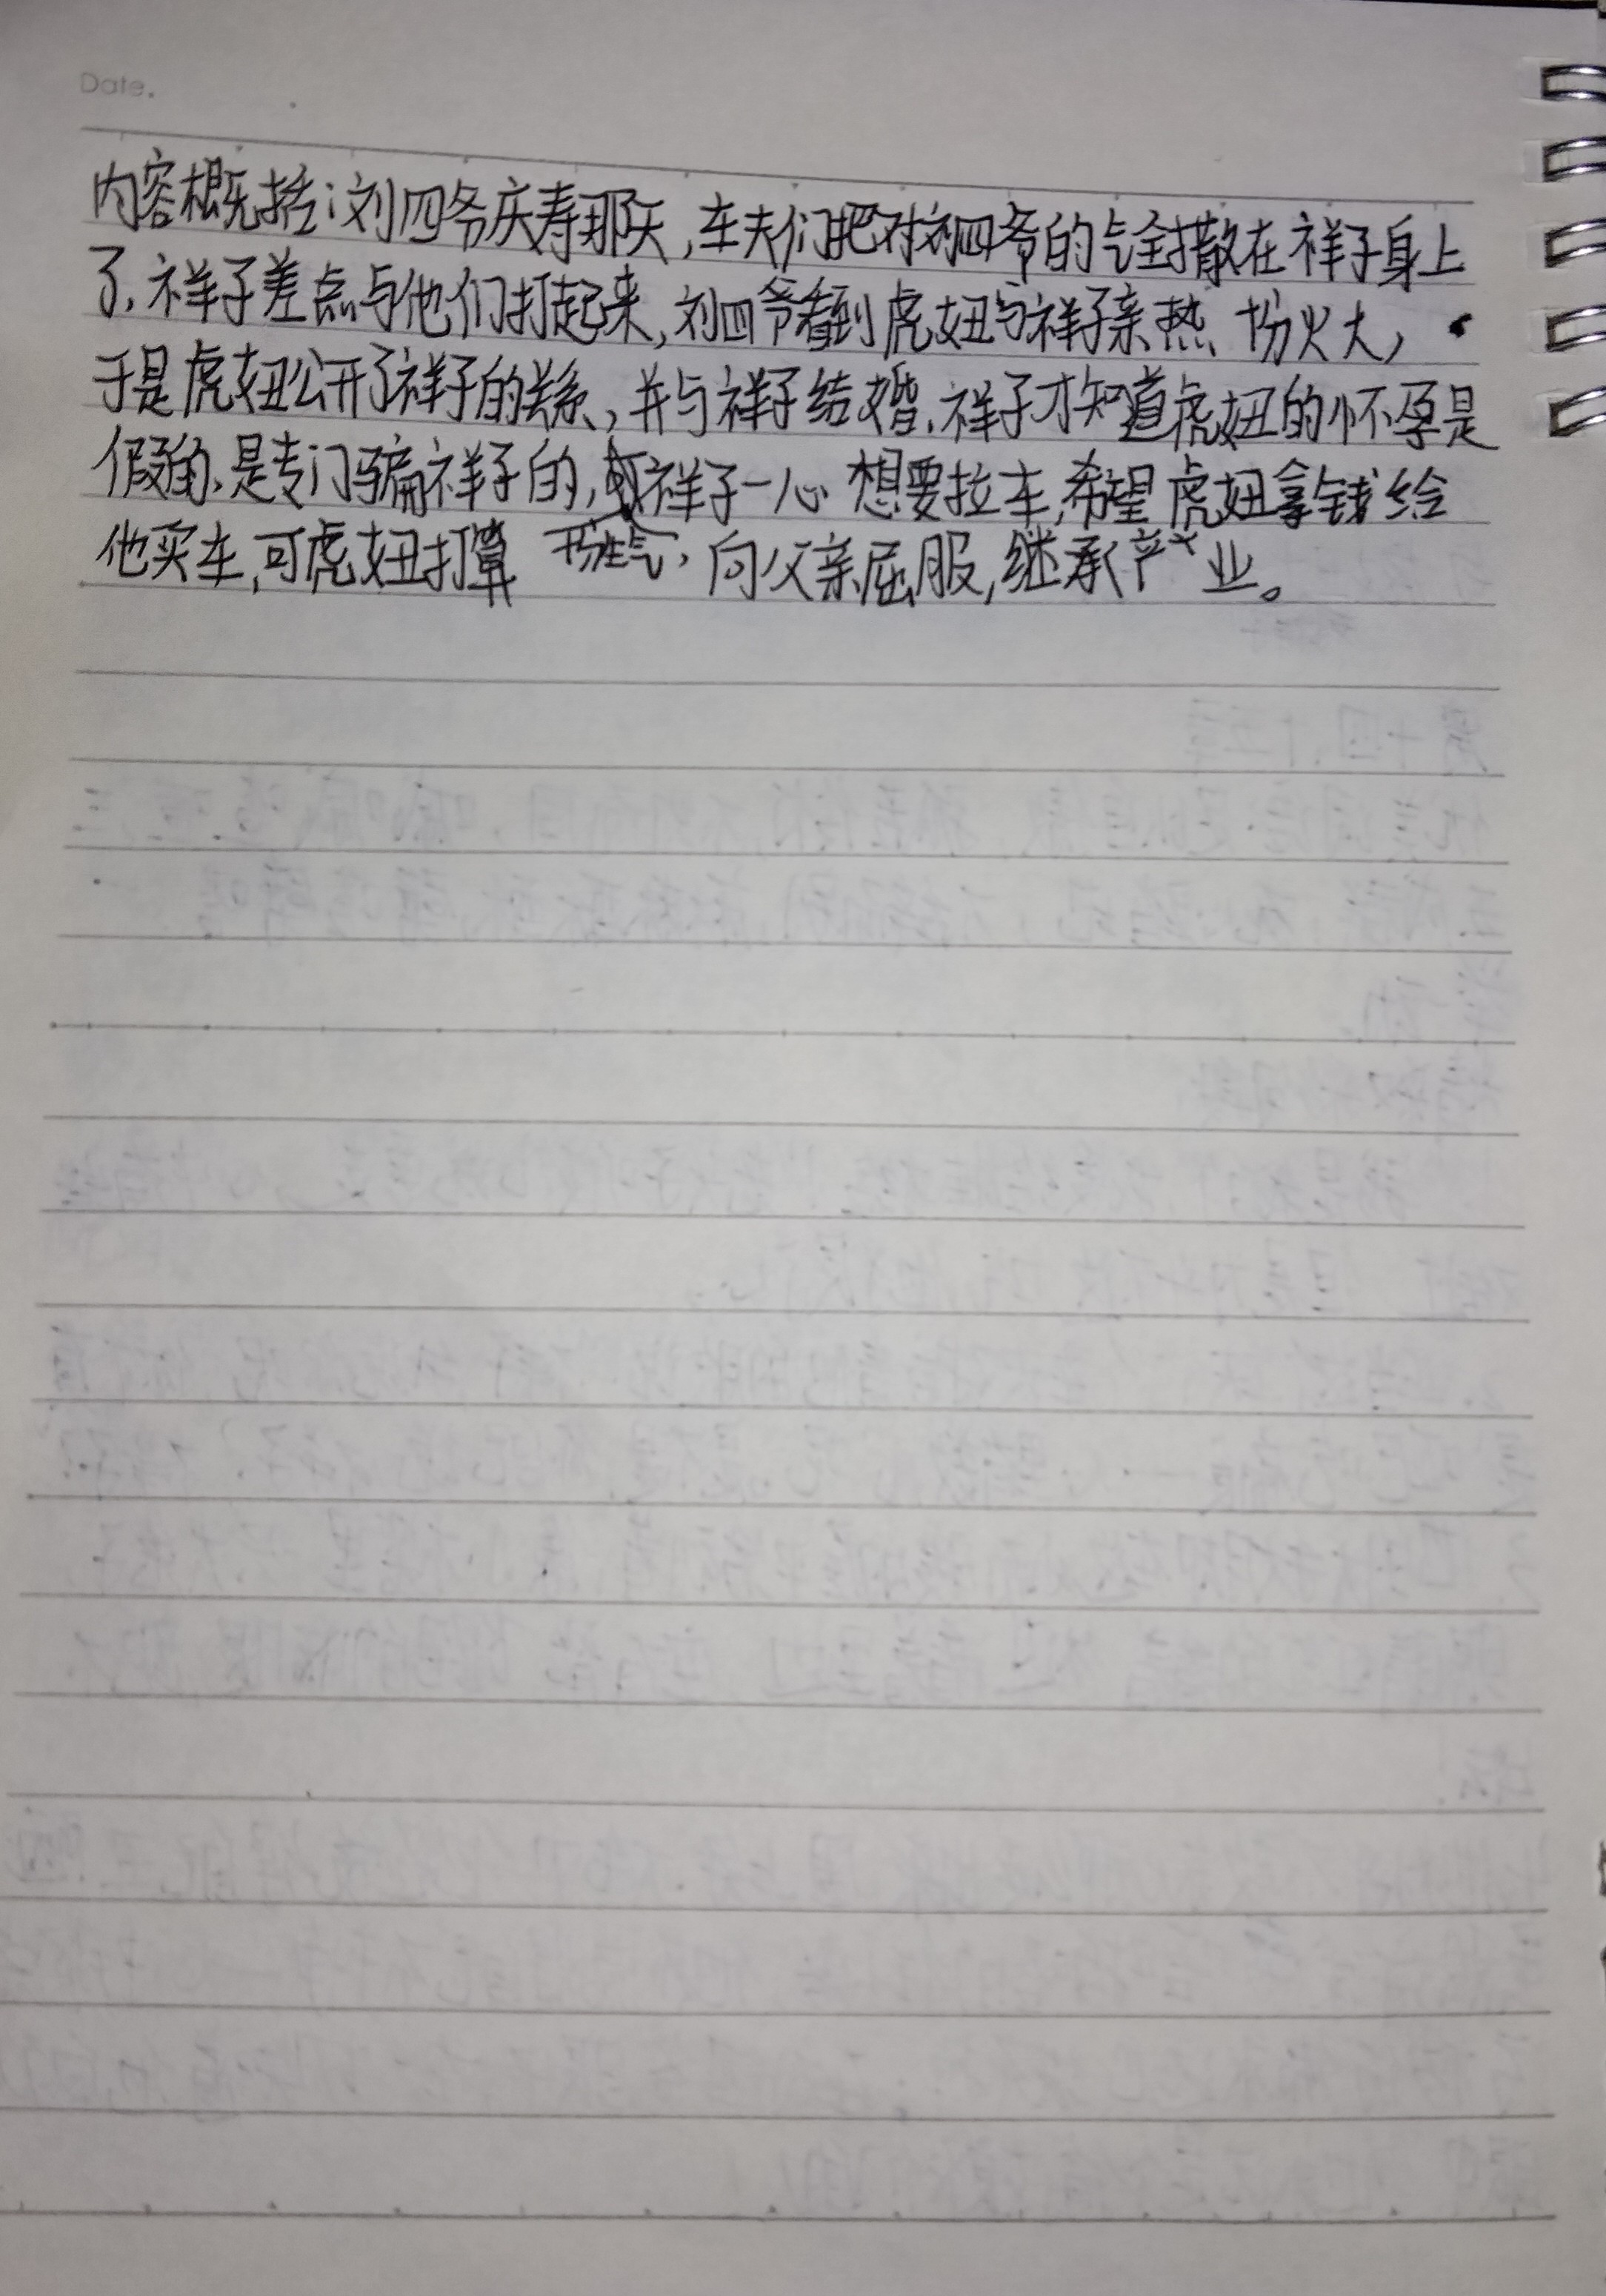 Date.
内容概括：刘四爷庆寿那天，车夫们把对刘四爷的气全撒在祥子身上
了，祥子差点与他们打起来，刘四爷看到虎妞与祥子亲热、火大，
于是虎妞公开了祥子的关系，并与祥子结婚，祥子才知道虎妞的怀孕是
假的、是专门骗祥子的，祥子一心想要拉车，希望虎妞拿钱给
他买车，可虎妞打算 向父亲屈服，继承产业。